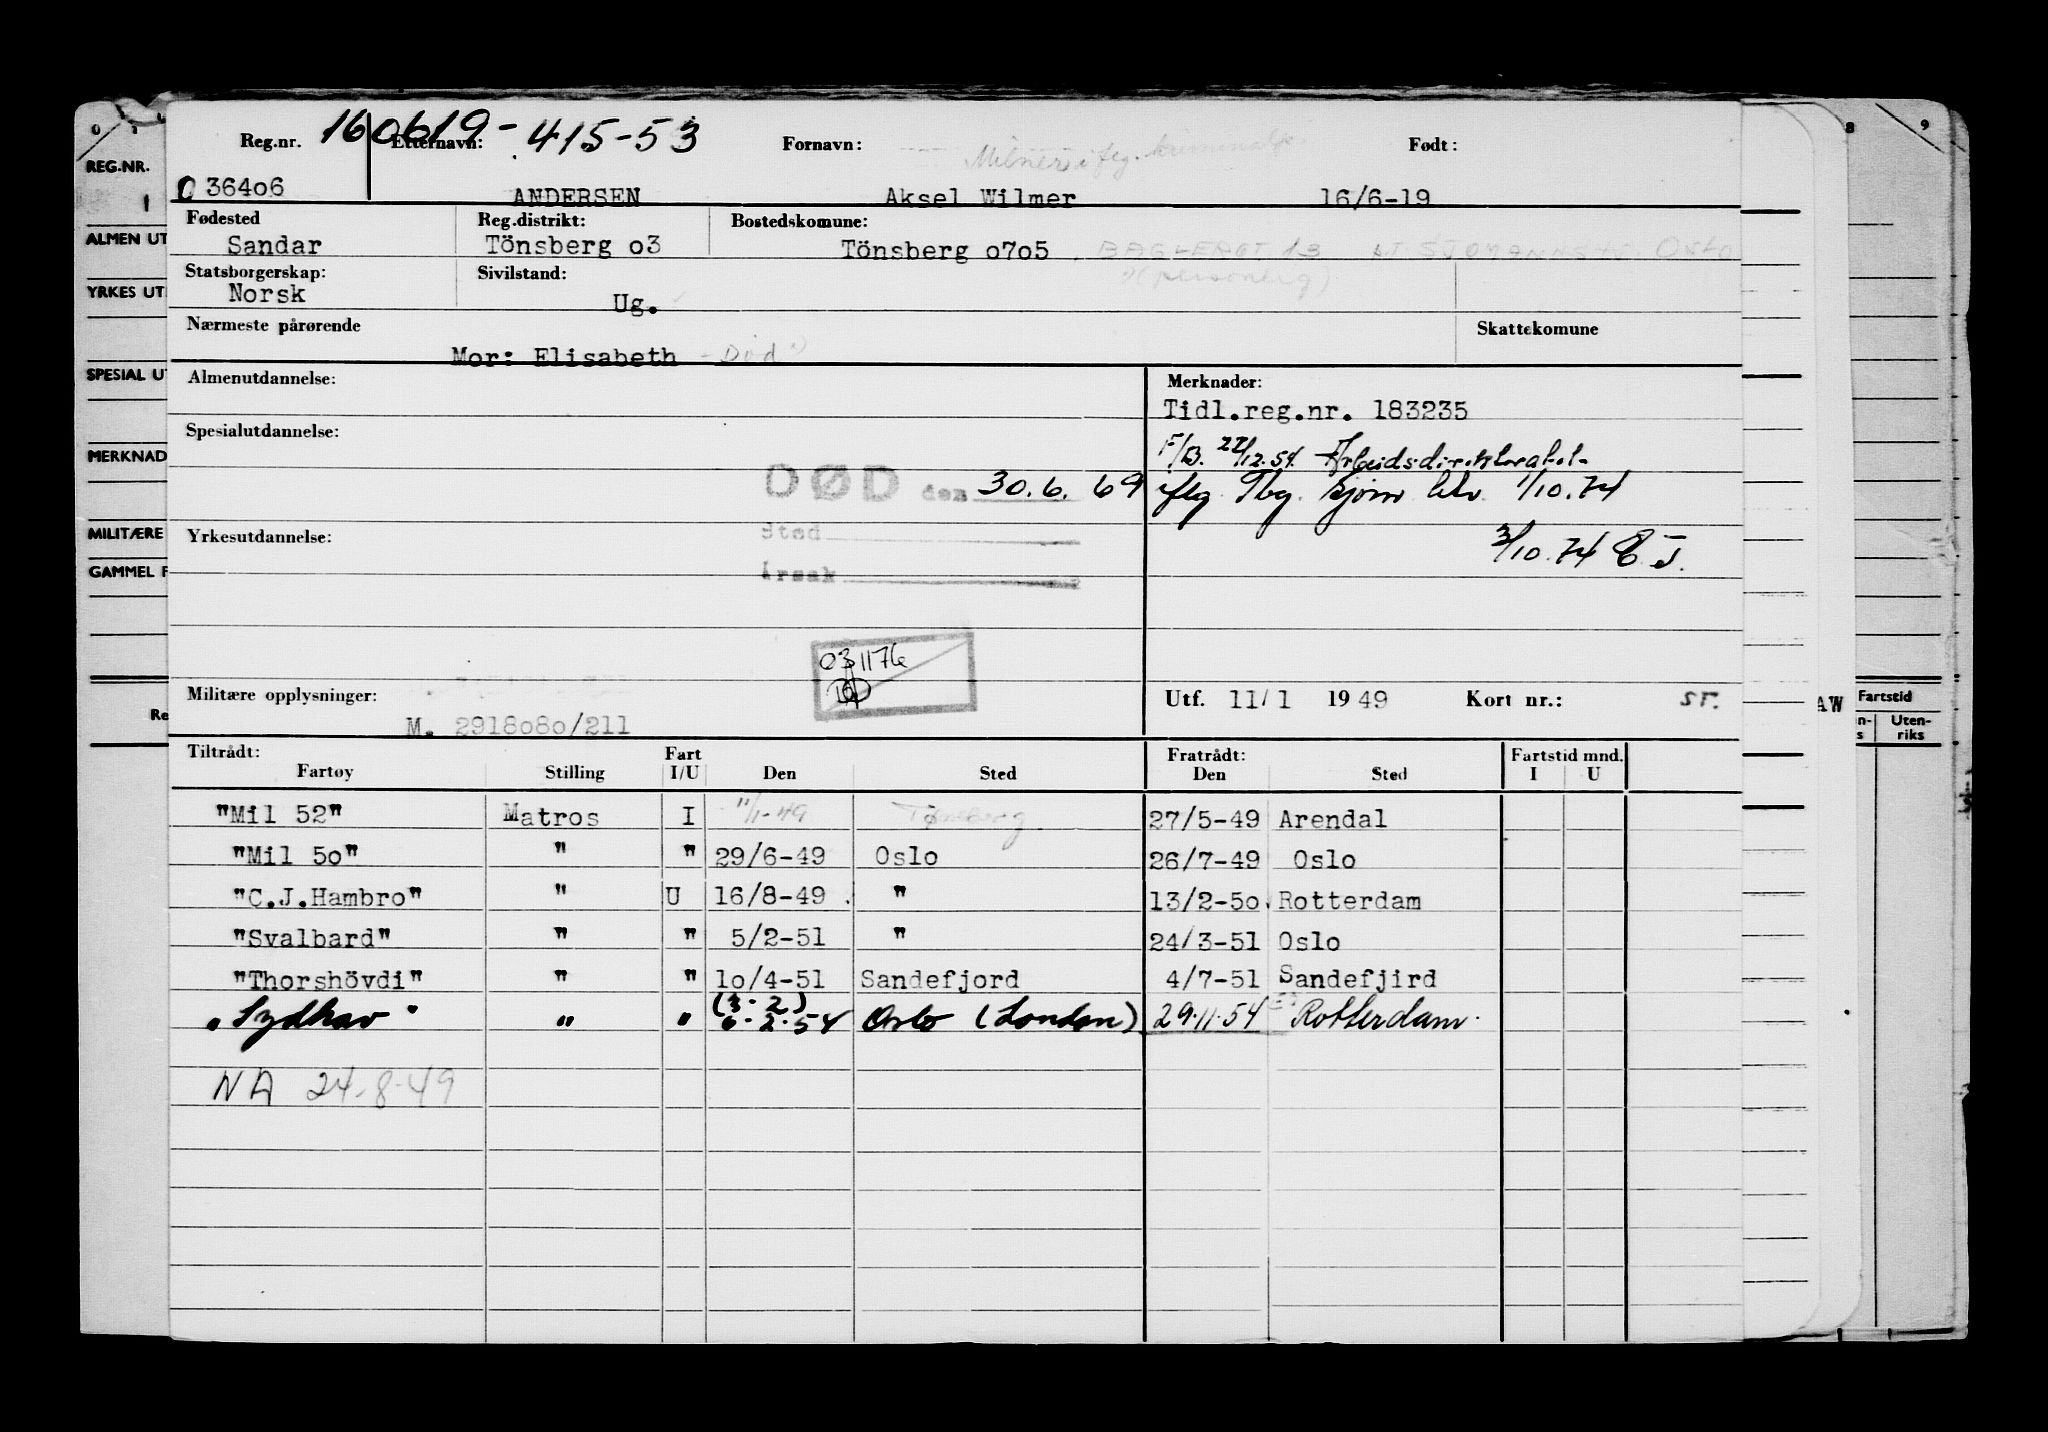 Reg.nr. 160619-415-53 Etternavn: Fornavn: Født:
036406 ANDERSEN Aksel Wilmer 16/6-19
Fødested Reg.distrikt: Bostedskomune:
Sandar Tönsberg o3 Tönsberg o7o5
Statsborgerskap: Sivilstand:
Norsk Ug.
Nærmeste pårørende Skattekomune
Mor: Elisabeth - Død
Almenutdannelse: Merknader:
Tidl.reg.nr. 183235
Spesialutdannelse:
F/B. 22/12.54. Arbeidsdirektoratet-
DØD den 30.6.69 iflg Tbg. Sjøm ktr. 1/10.74
Sted
Yrkesutdannelse: 3/10.74 E.J.
Årsak
031176
Militære opplysninger: Utf. 11/1 1949 Kort nr.: sr.
M. 2918o8o/211
Tiltrådt: Fart Fratrådt: Fartstid mnd.
Fartøy Stilling I/U Den Sted Den Sted I U
"Mil 52" Matros I 11/1-49 Tønsberg 27/5-49 Arendal
"Mil 5o" " " 29/6-49 Oslo 26/7-49 Oslo
"C.J.Hambro" " U 16/8-49 . " 13/2-5o. Rotterdam
"Svalbard" " " 5/2-51 " 24/3-51 Oslo
"Thorshövdi" " " 1o/4-51 Sandefjord 4/7-51 Sandefjird
(3.2)
"Sydhav" " " 6.2.54 Oslo (London) 29.11.54 Rotterdam.
NA 24-8-49
REG.NR.
ALMEN UT
YRKES UT.
SPESIAL UT
MERKNAD
MILITÆRE
GAMMEL F
Re
8 9
AW Fartstid
Uten-
riks